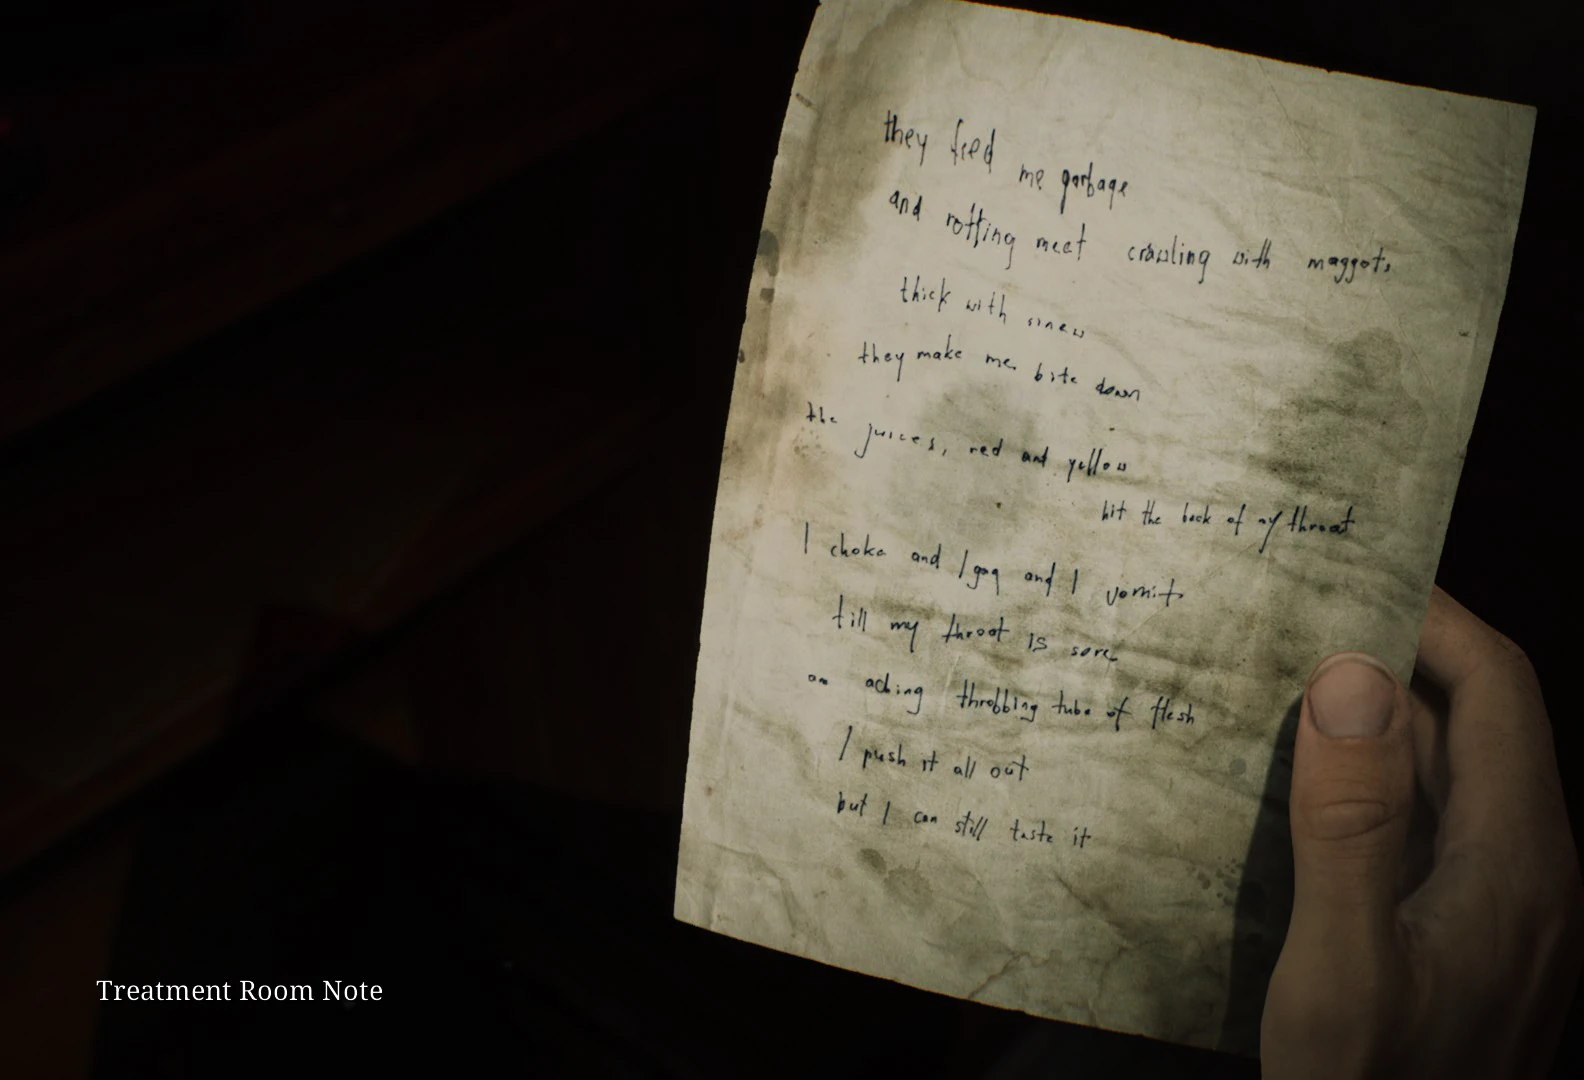 they feed me garbage
and rotting meet crawling with maggots
thick with sinew
they make me bite down
the juices, red and yellow
hit the back of my throat
I choke and I gag and I vomit
till my throat is sore
an aching throbbing tube of flesh
I push it all out
but I can still taste it
Treatment Room Note